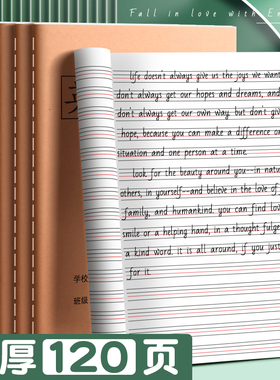 Fall in love with En
英
life doesn't always give us the joys we want.
don't always get our hopes and dreams, and
don't always get our own way. but don't give
hope, because you can make a difference on
situation and one person at a time.
look for the beauty around you--in natur
others, in yourself--and believe in the love of
family, and humankind. you can find love
smile or a helping hand, in a thought fulge
a kind word. it is all around, if you just
for it.
学校
班级
厚120页